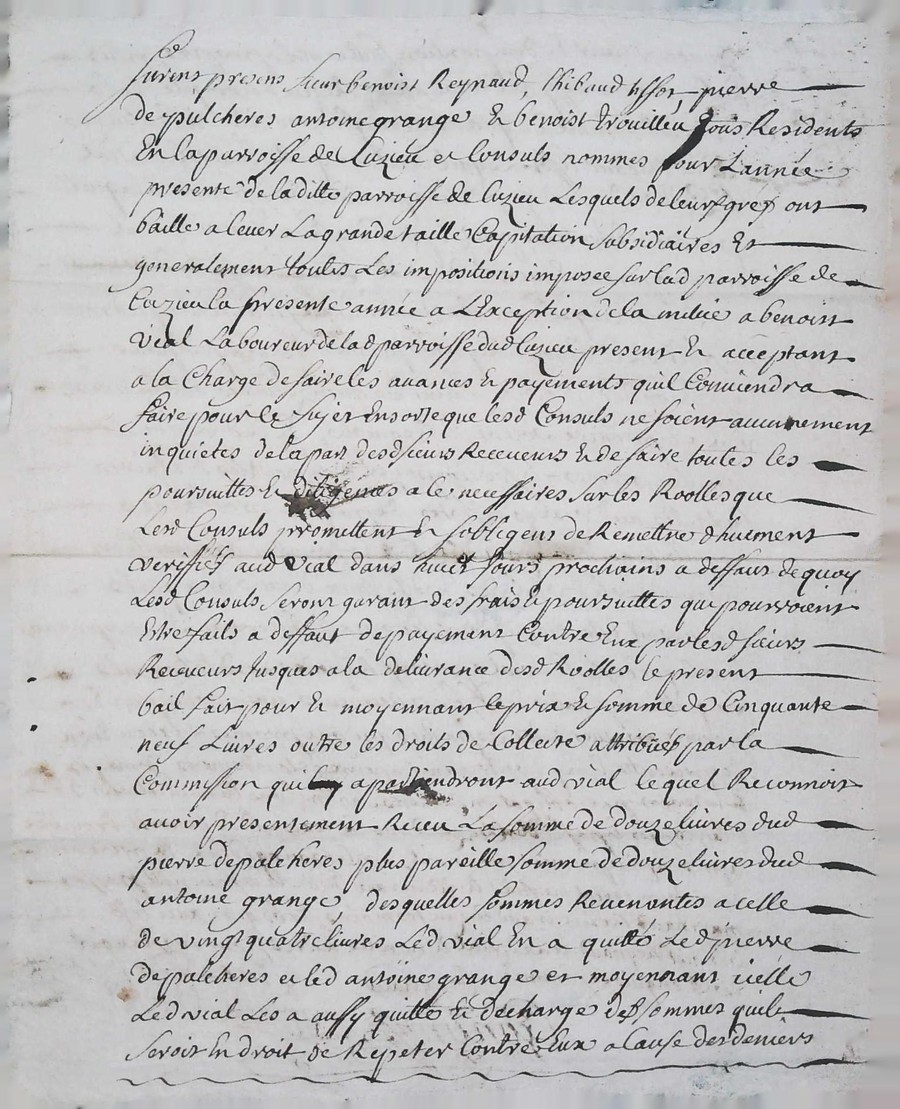 furent presens sieur benoist Reynaud, thibaud tissot, pierre
de pulcheres antoine grange & benoist trouilleu tous Residents
En la parroisse de Cuzieu et Consuls nommes pour L'année
presente de la ditte parroisse de Cuzieu Lesquels de leurs gres ont
baillé a lever La grande taille Capitation subsidiaires Et
generalement toutes Les impositions imposee sur lad parroisse de
Cuzieu la presente année a L'Exception de la milice a benoist
vial Laboureur de lad parroisse dud Cuzieu present & acceptant
a la Charge de faire les avances & payements quil Conviendra
faire pour le sujet En sorte que lesd Consuls ne soient aucunement
inquietes de la part desd sieurs Receveurs & de faire toutes les
poursuittes & diligences a ce necessaires sur les Roolles que
Lesd Consuls promettent & sobligent de Remettre dhuement
veriffies aud vial dans huict Jours prochains a deffaut de quoy
Lesd Consuls seront garant des frais & poursuittes qui pourroient
Etre faits a deffaut de payement Contre Eux par lesd sieurs
Receveurs Jusques a la delivrance desd Roolles le present
bail fait pour & moyennant le prix & somme de Cinquante
neuf Livres outre les droits de Collecte attribués par la
Commission qui apartiendront aud vial lequel Reconnoit
avoir presentement Receu La somme de douze livres dud
pierre de palcheres plus pareille somme de douze livres dud
antoine grange desquelles sommes Revenantes a celle
de vingt quatre livres Led vial En a quitté Led pierre
de palcheres et led antoine grange et moyennant icelle
Led vial Les a aussy quitté & decharge des sommes quil
seroit En droit de Repeter Contre Eux a Cause des deniers